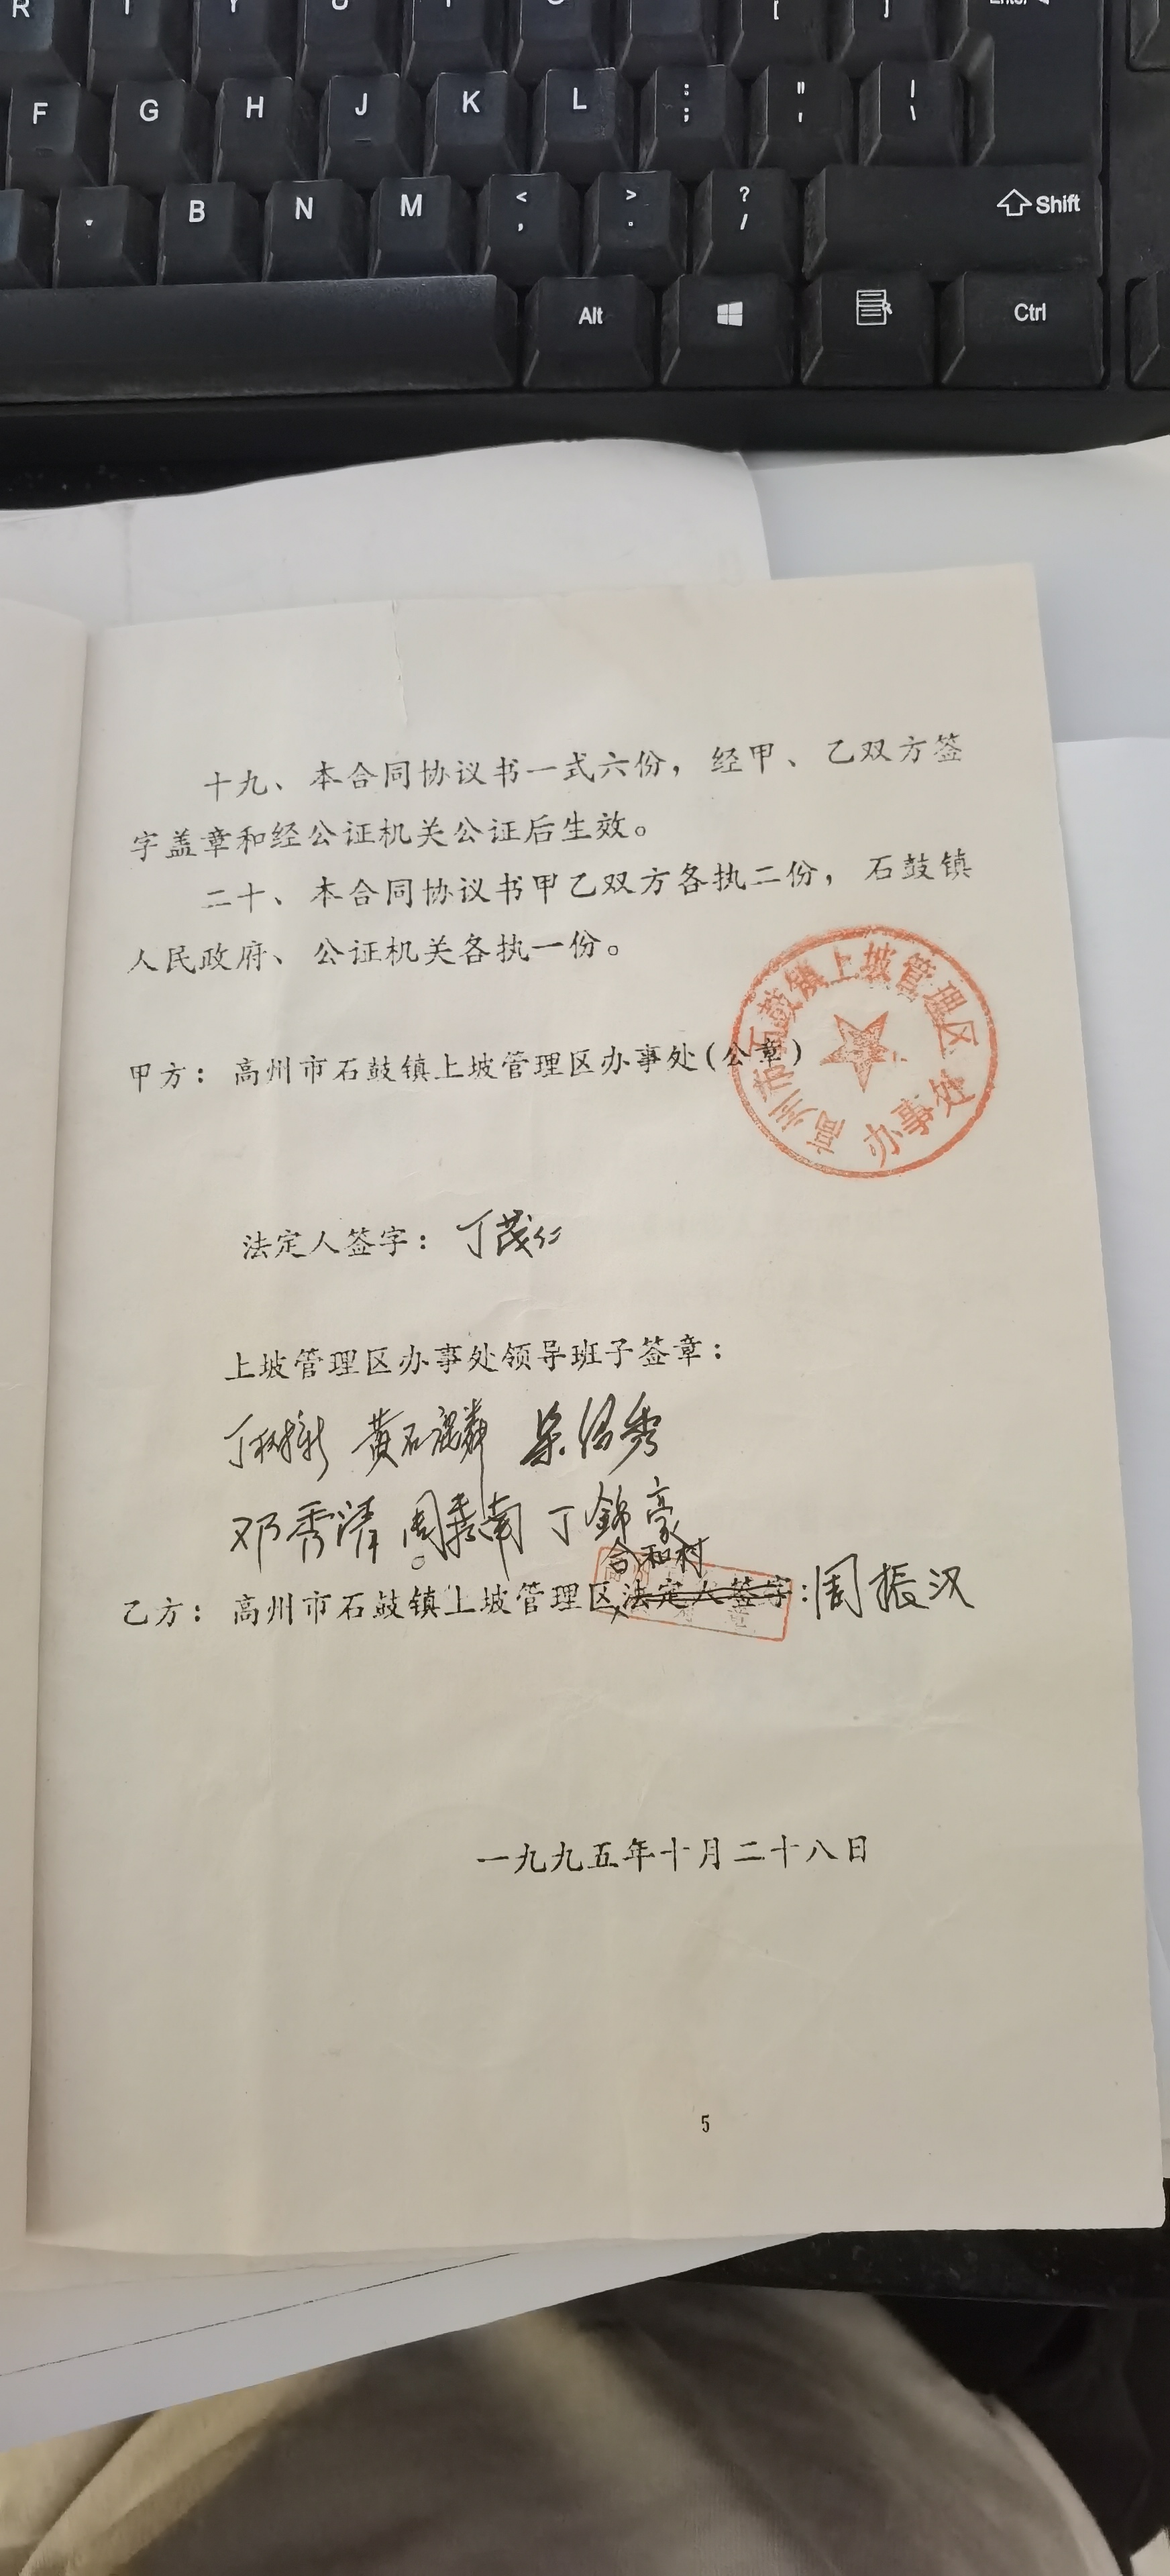 R T Y U I O [ ] Enter
F G H J K L : ; " ' | \
B N M < , > . ? / Shift
Alt Ctrl
十九、本合同协议书一式六份，经甲、乙双方签
字盖章和经公证机关公证后生效。
二十、本合同协议书甲乙双方各执二份，石鼓镇
人民政府、公证机关各执一份。
高州市石鼓镇上坡管理区
办事处
甲方：高州市石鼓镇上坡管理区办事处(公章)
法定人签字：丁茂仁
上坡管理区办事处领导班子签章：
丁树新 黄石麟
邓秀清 周秀南 丁錦豪
合和村
乙方：高州市石鼓镇上坡管理区法定人签字:周振汉
一九九五年十月二十八日
5